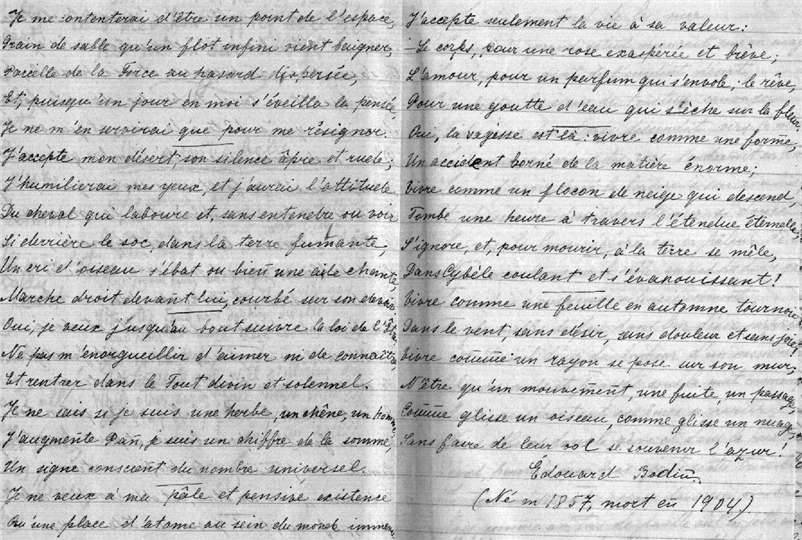 Je me contenterai d'être un point de l'espace,
Grain de sable qu'un flot infini vient baigner,
Parcelle de la Force au hasard dispersée,
Et, puisqu'un jour en moi s'éveilla la pensée,
Je ne m'en servirai que pour me résigner.
J'accepte mon désert son silence âpre et rude;
J'humilierai mes yeux, et j'aurai l'attitude
Du cheval qui laboure et, sans entendre ou voir
Si derrière le soc, dans la terre fumante,
Un cri d'oiseau s'ébat ou bien une aile chante
Marche droit devant lui, courbé sur son devoir.
Oui, je veux jusqu'au bout suivre la loi de l'
Ne pas m'enorgueillir d'aimer ni de connaître
Et rentrer dans le Tout divin et solennel.
Je ne sais si je suis une herbe, un chêne, un homme
J'augmente Pan, je suis un chiffre de la somme,
Un signe conscient du nombre universel.
Je ne veux à ma pâle et pensive existence
Qu'une place d'atome au sein du monde immense
J'accepte seulement la vie à sa valeur:
- Le corps, pour une rose exaspérée et brève;
L'amour, pour un parfum qui s'envole; le rêve,
Pour une goutte d'eau qui sèche sur la fleur.
Oui, la sagesse est là: vivre comme une forme,
Un accident borné de la matière énorme;
Vivre comme un flocon de neige qui descend,
Tombe une heure à travers l'étendue éternelle,
S'ignore, et, pour mourir, à la terre se mêle,
Dans Cybèle coulant et s'évanouissant!
Vivre comme une feuille en automne tournoie
Dans le vent, sans désir, sans douleur et sans joie,
Vivre comme un rayon se pose sur son mur,
N'être qu'un mouvement, une fuite, un passage,
Comme glisse un oiseau, comme glisse un nuage,
Sans faire de leur vol se souvenir l'azur!
Édouard Bodin
(Né en 1857, mort en 1904)